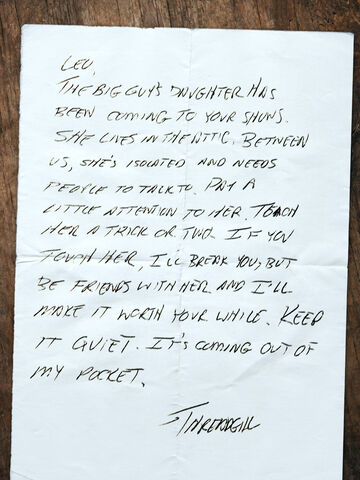 LEO,
THE BIG GUY'S DAUGHTER HAS
BEEN COMING TO YOUR SHOWS.
SHE LIVES IN THE ATTIC. BETWEEN
US, SHE'S ISOLATED AND NEEDS
PEOPLE TO TALK TO. PAY A
LITTLE ATTENTION TO HER. TEACH
HER A TRICK OR TWO. IF YOU
TOUCH HER, I'LL BREAK YOU, BUT
BE FRIENDS WITH HER AND I'LL
MAKE IT WORTH YOUR WHILE. KEEP
IT QUIET. IT'S COMING OUT OF
MY POCKET.
THREADGILL